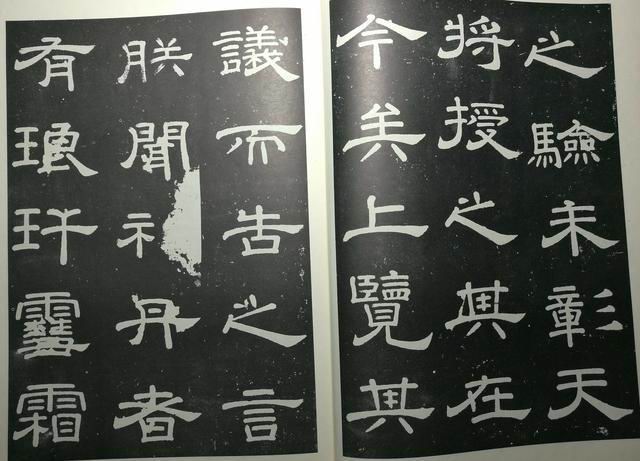 之驗未彰天
将授之其在
今矣上覽其
議而告之言
朕聞丹者
有琅玕靈霜